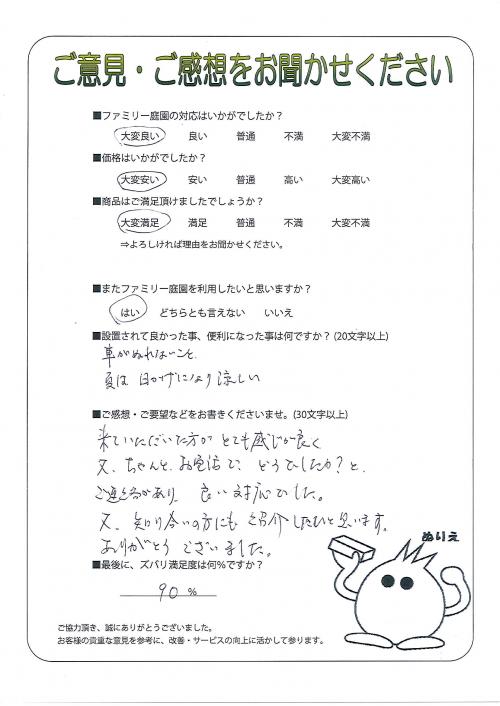 ご意見・ご感想をお聞かせください
■ファミリー庭園の対応はいかがでしたか？
大変良い 良い 普通 不満 大変不満
■価格はいかがでしたか？
大変安い 安い 普通 高い 大変高い
■商品はご満足頂けましたでしょうか？
大変満足 満足 普通 不満 大変不満
⇒よろしければ理由をお聞かせください。
■またファミリー庭園を利用したいと思いますか？
はい どちらとも言えない いいえ
■設置されて良かった事、便利になった事は何ですか？(20文字以上)
車がぬれないこと、
夏は 日かげになり 涼しい
■ご感想・ご要望などをお書きくださいませ。(30文字以上)
来ていただいた方が とても感じが良く
又、ちゃんと お電話で、どうでしたか？と、
ご連絡があり、良い対応でした。
又、知り合いの方にも 紹介したいと思います。
ありがとう ございました。
ぬりえ
■最後に、ズバリ満足度は何％ですか？
90 ％
ご協力頂き、誠にありがとうございました。
お客様の貴重な意見を参考に、改善・サービスの向上に活かして参ります。